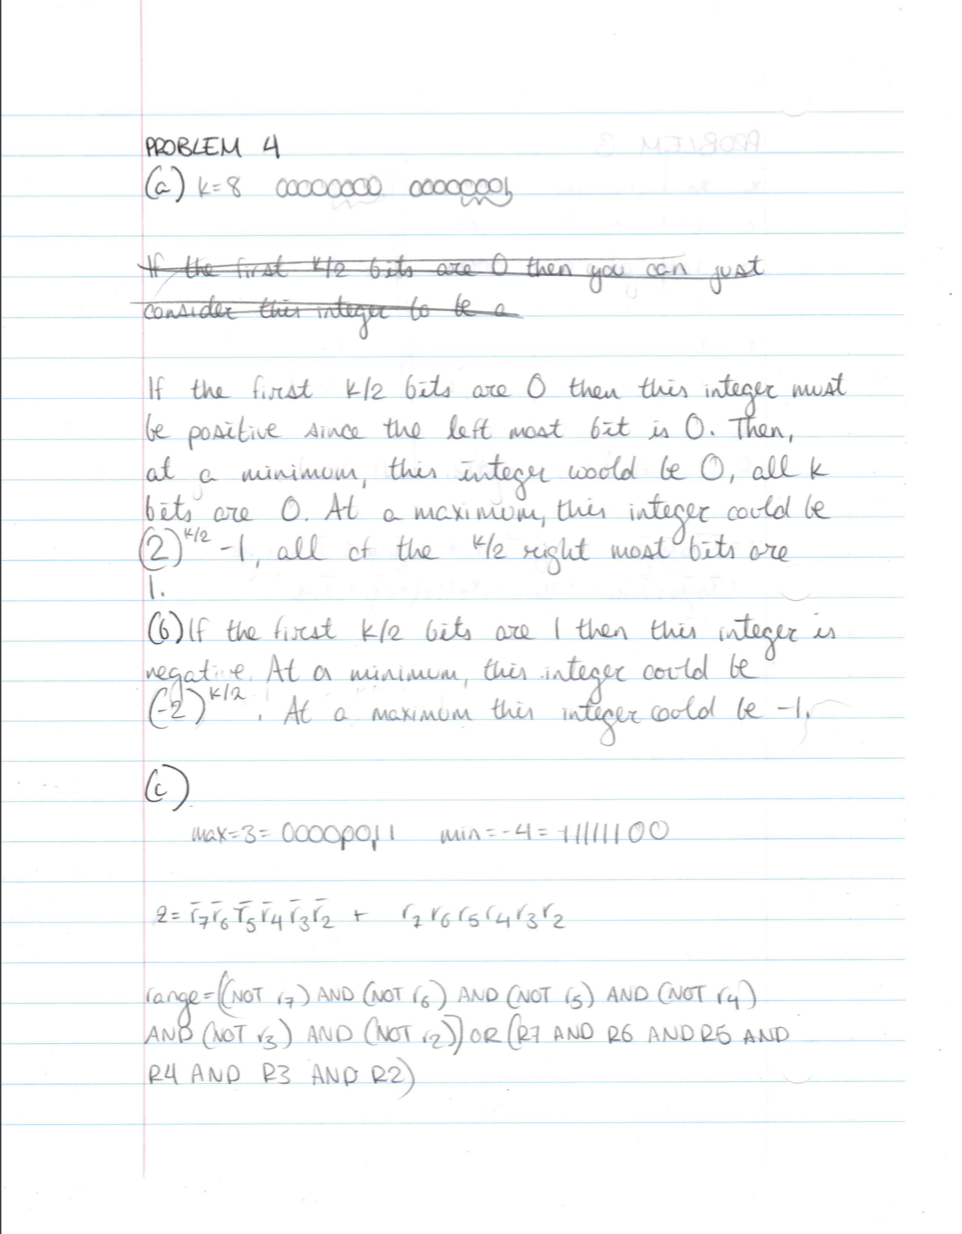 PROBLEM 4
(a) k=8 00000000 00000001
If the first k/2 bits are 0 then you can just
consider this integer to be a
If the first k/2 bits are 0 then this integer must
be positive since the left most bit is 0. Then,
at a minimum, this integer would be 0, all k
bits are 0. At a maximum, this integer could be
(2)^k/2 -1, all of the k/2 right most bits are
1.
(b) If the first k/2 bits are 1 then this integer is
negative. At a minimum, this integer could be
(-2)^k/2. At a maximum this integer could be -1.
(c)
max=3=00000011 min=-4=11111100
z= r̅7r̅6r̅5r̅4r̅3r̅2 + r7r6r5r4r3r2
range=((NOT r7) AND (NOT r6) AND (NOT r5) AND (NOT r4)
AND (NOT r3) AND (NOT r2)) OR (R7 AND R6 AND R5 AND
R4 AND R3 AND R2)